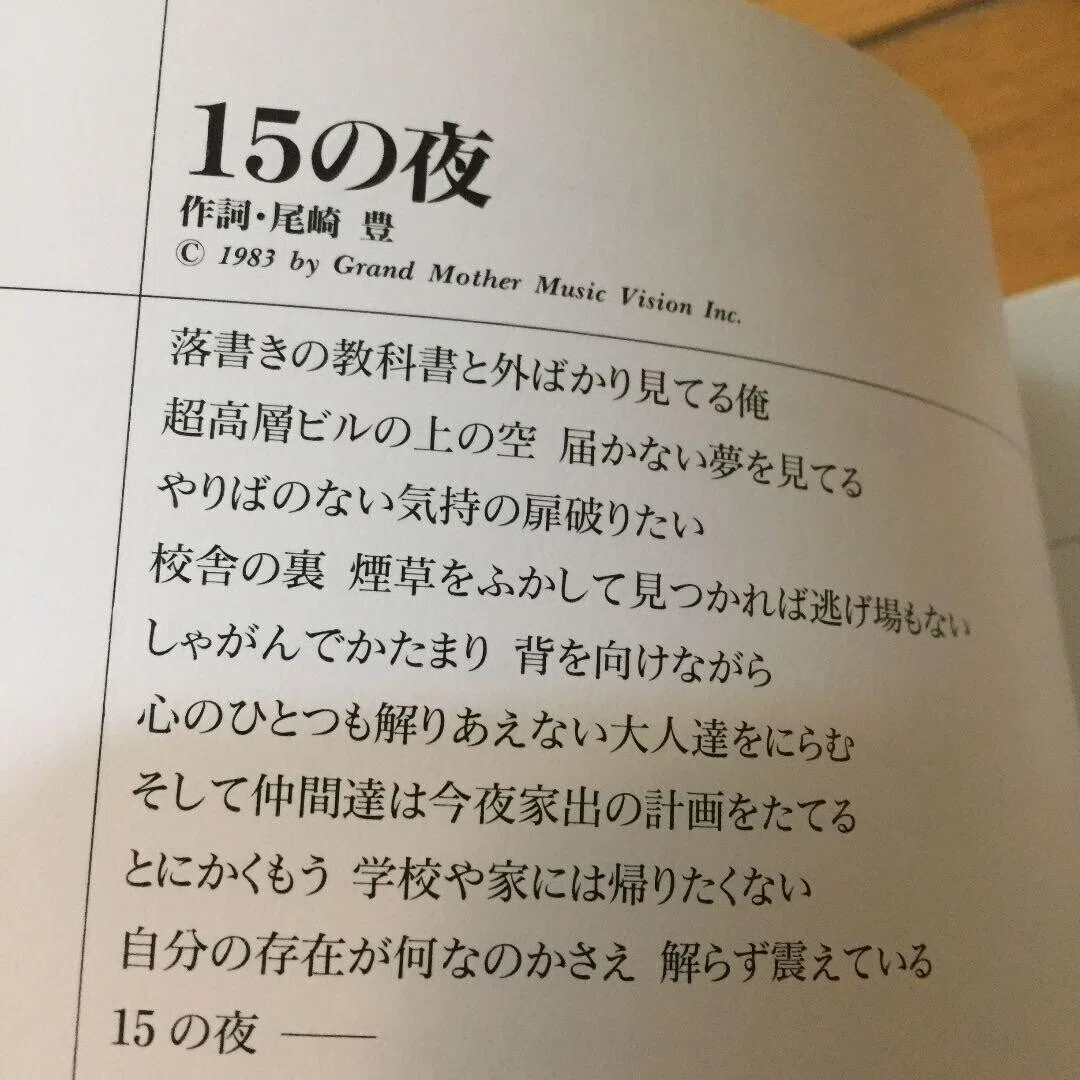 15の夜
作詞・尾崎 豊
© 1983 by Grand Mother Music Vision Inc.
落書きの教科書と外ばかり見てる俺
超高層ビルの上の空 届かない夢を見てる
やりばのない気持の扉破りたい
校舎の裏 煙草をふかして見つかれば逃げ場もない
しゃがんでかたまり 背を向けながら
心のひとつも解りあえない大人達をにらむ
そして仲間達は今夜家出の計画をたてる
とにかくもう 学校や家には帰りたくない
自分の存在が何なのかさえ 解らず震えている
15の夜 ——